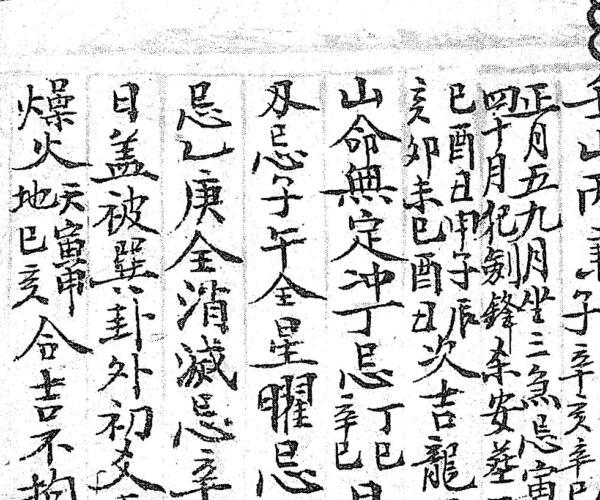 山丙兼子辛亥辛巳
正月五九月坐三煞忌寅
四十月犯劍鋒杀安葬
巳酉丑申子辰
亥卯未巳酉丑
次吉龍
山命無定冲丁忌丁巳辛巳日
刄忌子午全星曜忌
忌乙庚全消滅忌辛
日盖被巽卦外初爻
燥火天寅申地巳亥合吉不拘